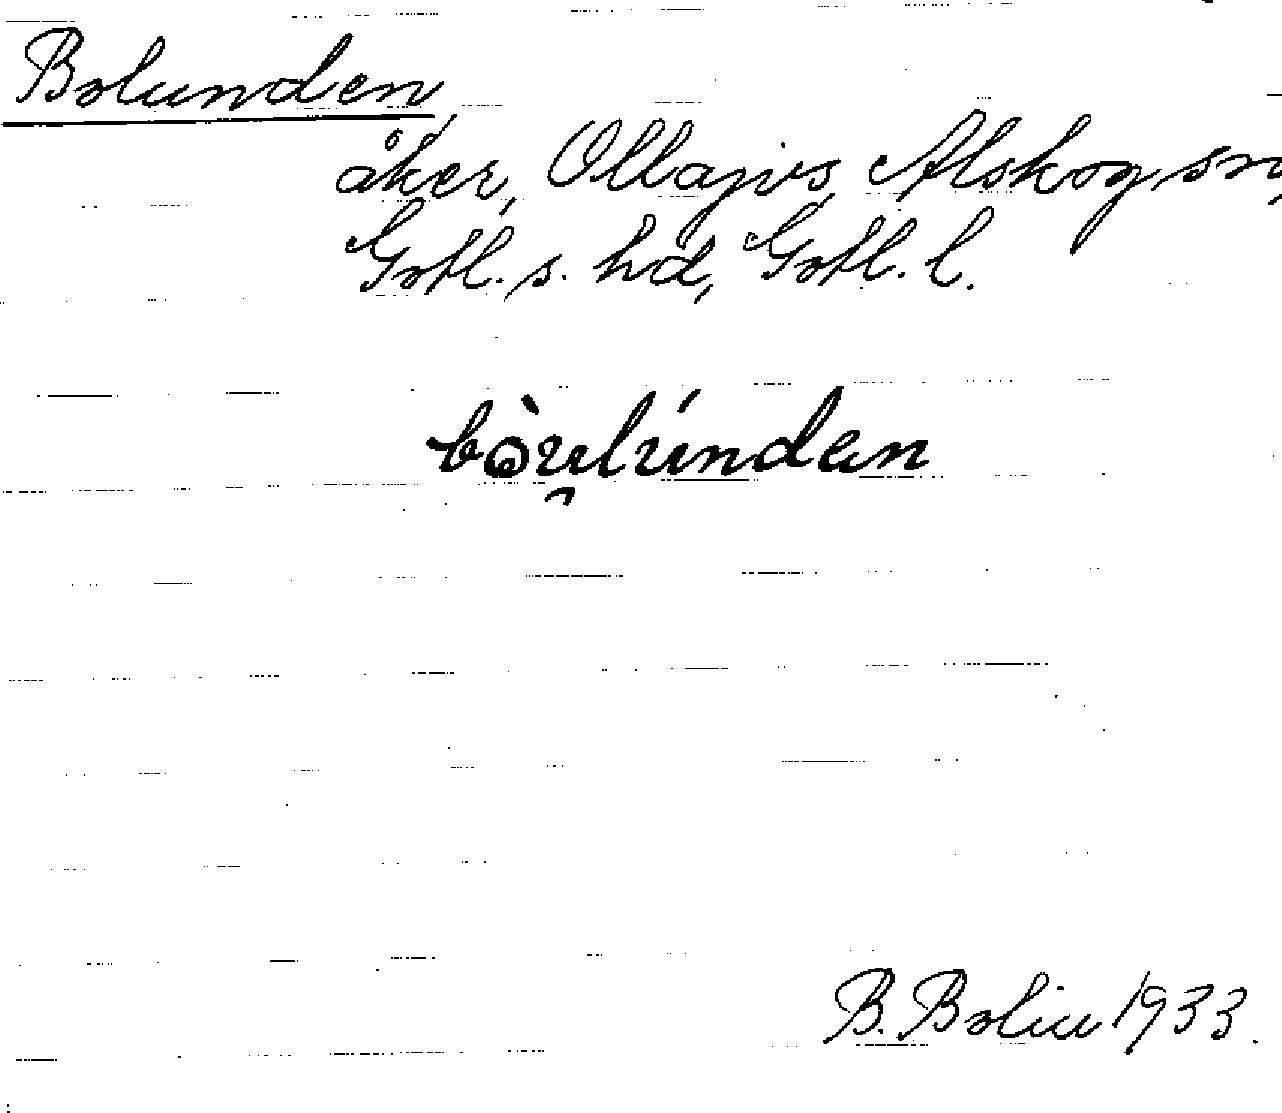 Bolunden,
åker, Ollajvs, Alskog sn,
Gotl. s. hd, Gotl. l.
B. Bolin 1933.